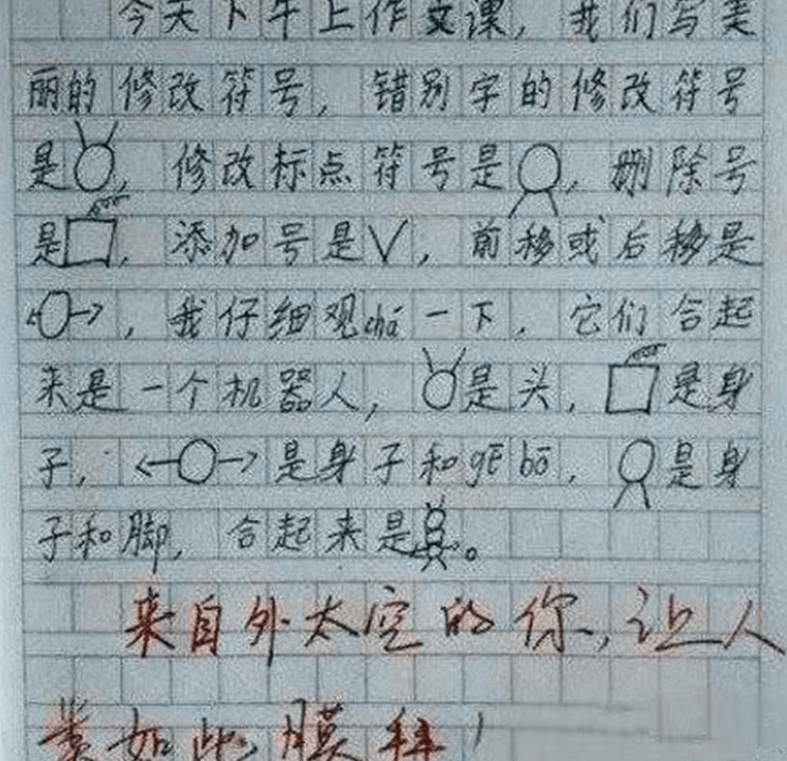 今天下午上作文课，我们写美
丽的修改符号，错别字的修改符号
是，修改标点符号是，删除号
是，添加号是∨，前移或后移是
，我仔细观chá一下，它们合起
来是一个机器人，是头，是身
子，是身子和gē bō，是身
子和脚，合起来是。
来自外太空的你，让人
类如此膜拜！